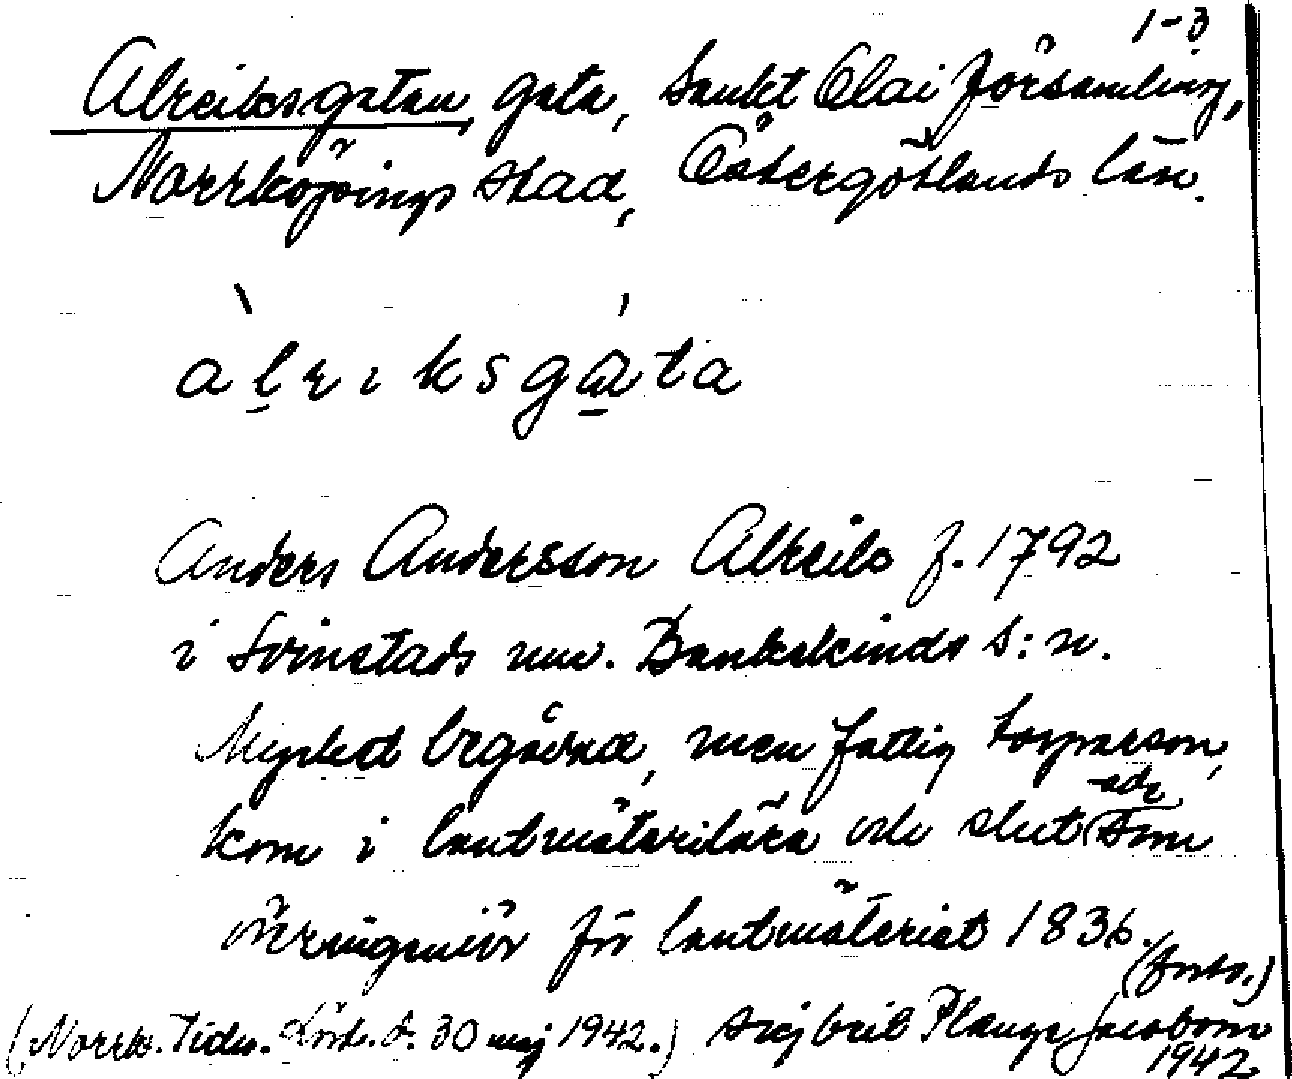 1-3
Alreiksgatan, gata, Sankt Olai församling,
Norrköpings stad, Östergötlands län.
alrıksgata
Anders Andersson Alreik f. 1792
i Svinstads nuv. Bankekinds s:n.
Mycket begåvad, men fattig torparson,
kom i lantmäterilära och slutade som
överingeniör för lantmäteriet 1836.
(forts.)
(Norrk. Tidn. Lörd. d. 30 maj 1942.) Sigbrit Plaenge Jacobson
1942